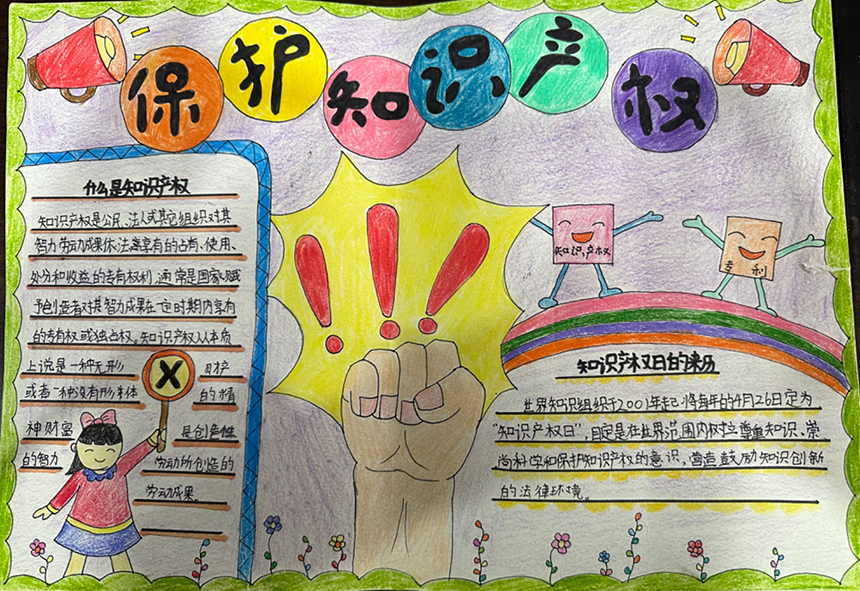 保护知识产权
什么是知识产权
知识产权是公民、法人或其它组织对其
智力劳动成果依法享有的占有、使用、
处分和收益的专有权利,通常是国家赋
予创造者对其智力成果在一定时期内享有
的专有权或独占权。知识产权从本质
上说是一种无形
或者一种没有形体 的精
神财富 是创造性
的智力 劳动所创造的
劳动成果。
X
知识产权
专利
知识产权日的来历
世界知识组织于2001年起将每年的4月26日定为
"知识产权日",目定是在世界范围内树立尊重知识,崇
尚科学和保护知识产权的意识,营造鼓励知识创新
的法律环境。